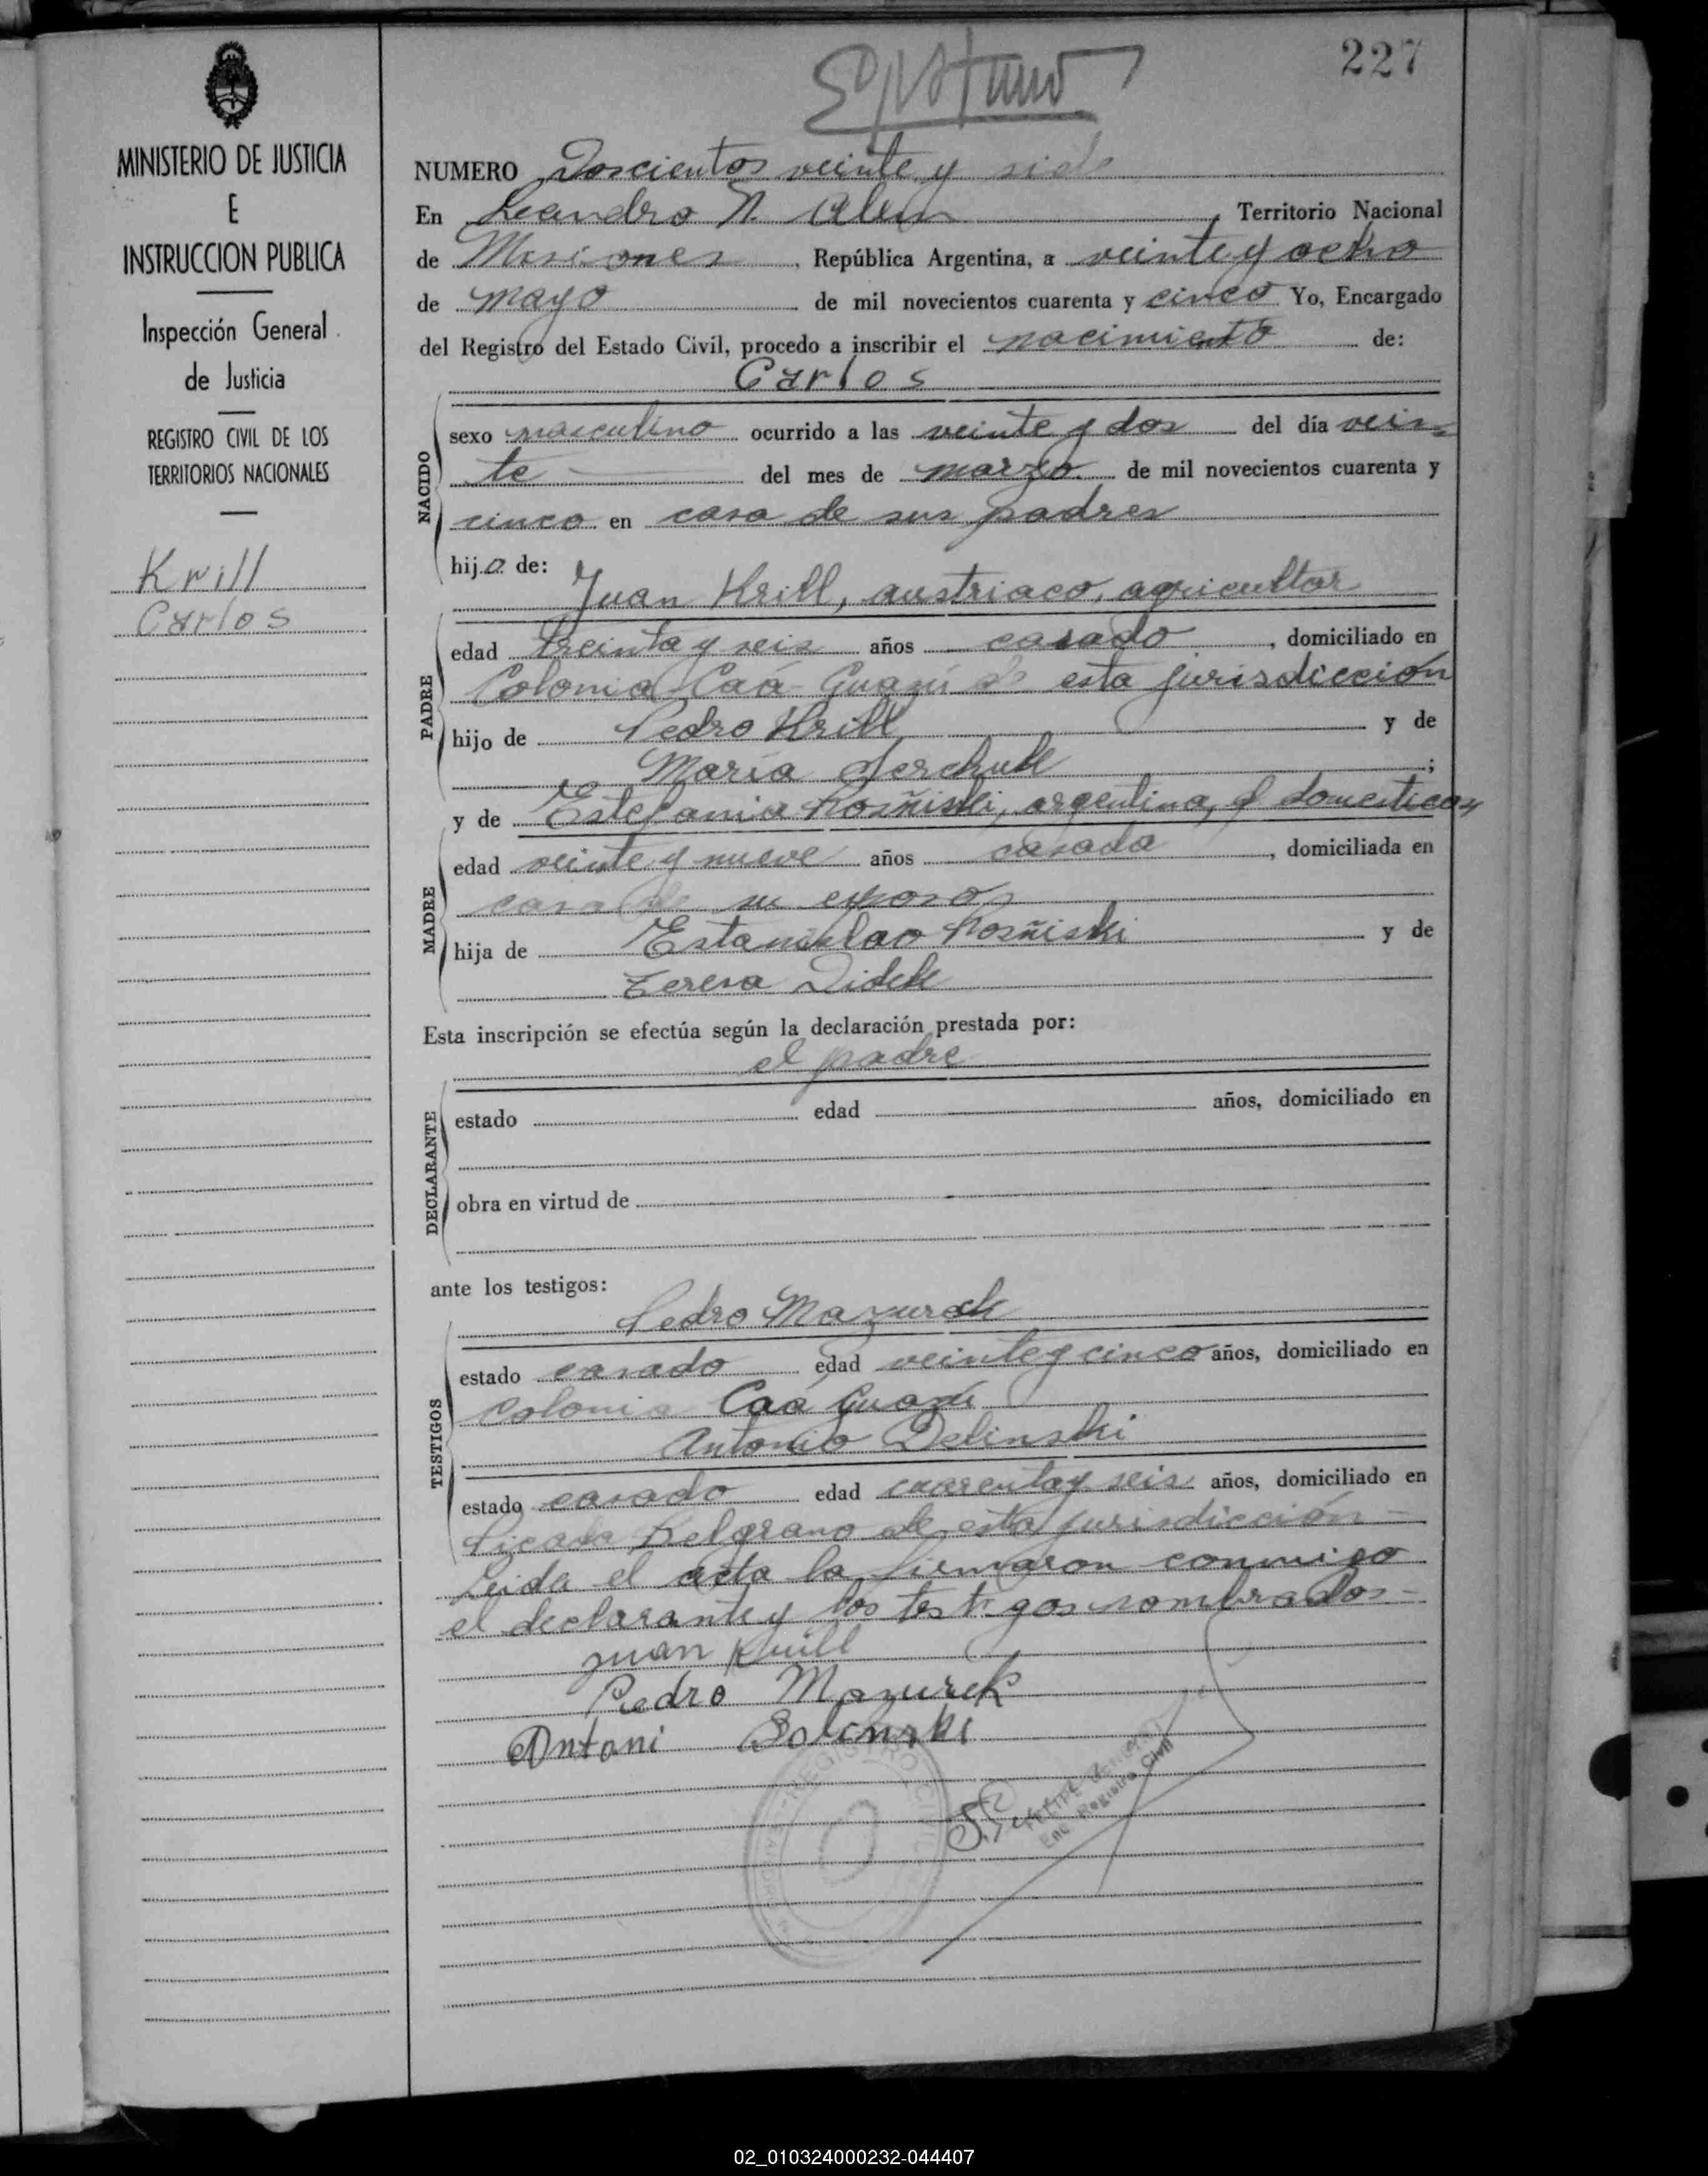 227
MINISTERIO DE JUSTICIA
E
INSTRUCCION PUBLICA
Inspección General
de Justicia
REGISTRO CIVIL DE LOS
TERRITORIOS NACIONALES
Krill
Carlos
NUMERO Doscientos veinte y siete
En Leandro N. Alem, Territorio Nacional
de Misiones, República Argentina, a veinte y ocho
de mayo de mil novecientos cuarenta y cinco Yo, Encargado
del Registro del Estado Civil, procedo a inscribir el nacimiento de:
Carlos
NACIDO
sexo masculino ocurrido a las veinte y dos del día vein-
te del mes de marzo de mil novecientos cuarenta y
cinco en casa de sus padres
hijo de:
Juan Krill, austriaco, agricultor
PADRE
edad treinta y seis años casado, domiciliado en
Colonia Caá-Guazú de esta jurisdicción
hijo de Pedro Krill y de
María Serchuk;
y de Estefania Rosñiski, argentina, q domesticos
MADRE
edad veinte y nueve años casada, domiciliada en
casa de su esposo
hija de Estanislao Rosñiski y de
Teresa Didek
Esta inscripción se efectúa según la declaración prestada por:
el padre
DECLARANTE
estado edad años, domiciliado en
obra en virtud de
ante los testigos:
Pedro Mazurek
TESTIGOS
estado casado edad veinte y cinco años, domiciliado en
Colonia Caá Guazú
Antonio Delinski
estado casado edad cuarenta y seis años, domiciliado en
Picada Belgrano de esta jurisdicción-
Leida el acta la firmaron conmigo
el declarante y los testigos nombrados-
Juan Krill
Pedro Mazurek
Antoni Bolinski
REGISTRO CIVIL
Enc. Registro Civil
02_010324000232-044407